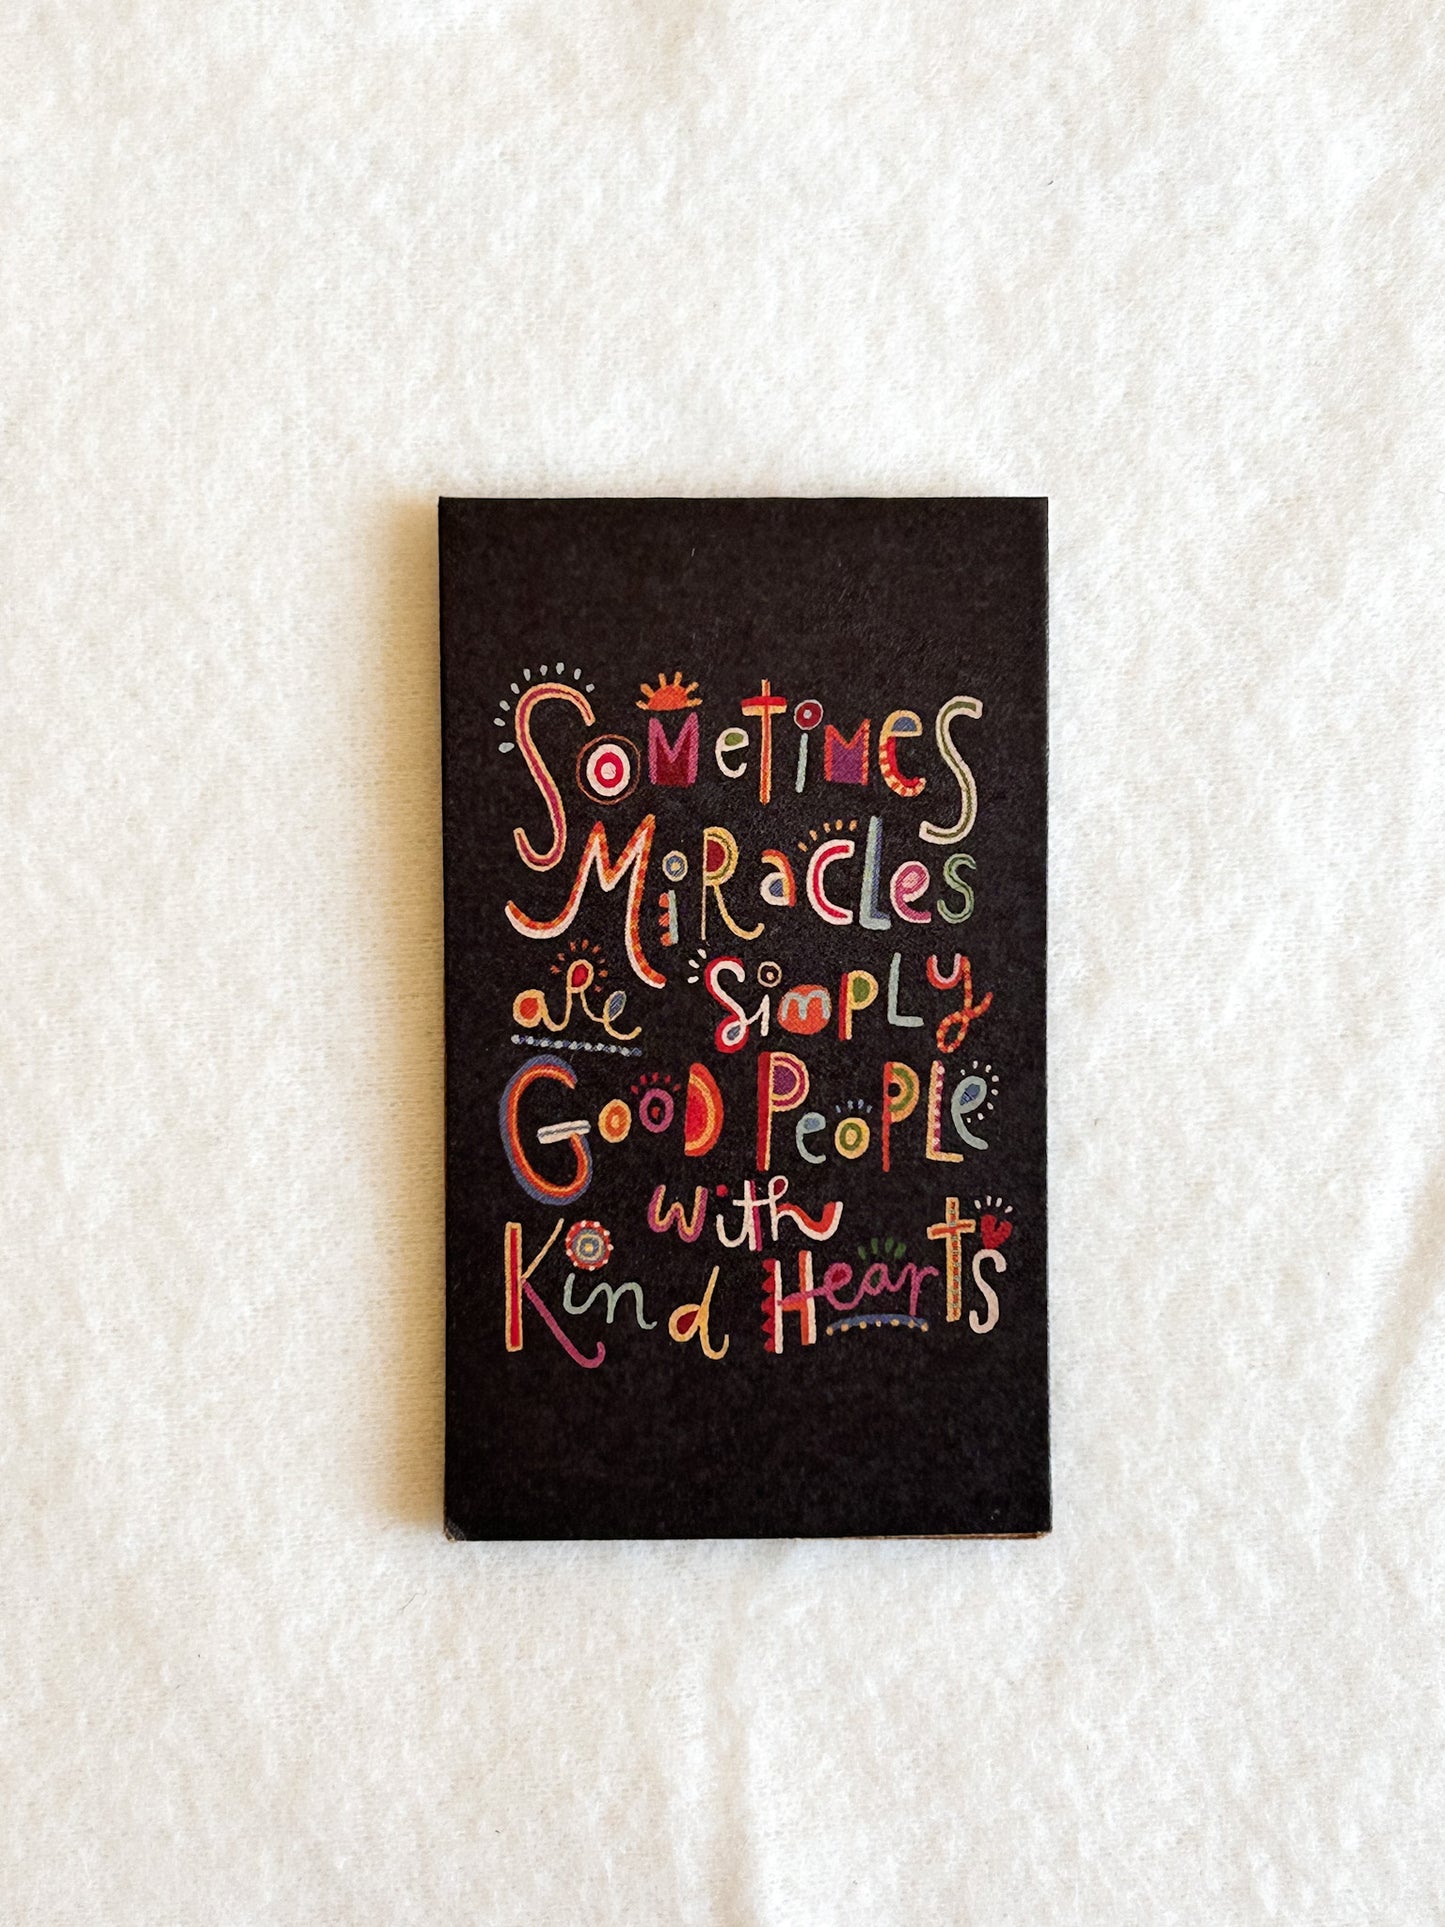 Sometimes
Miracles
are Simply
Good People
with
Kind Hearts